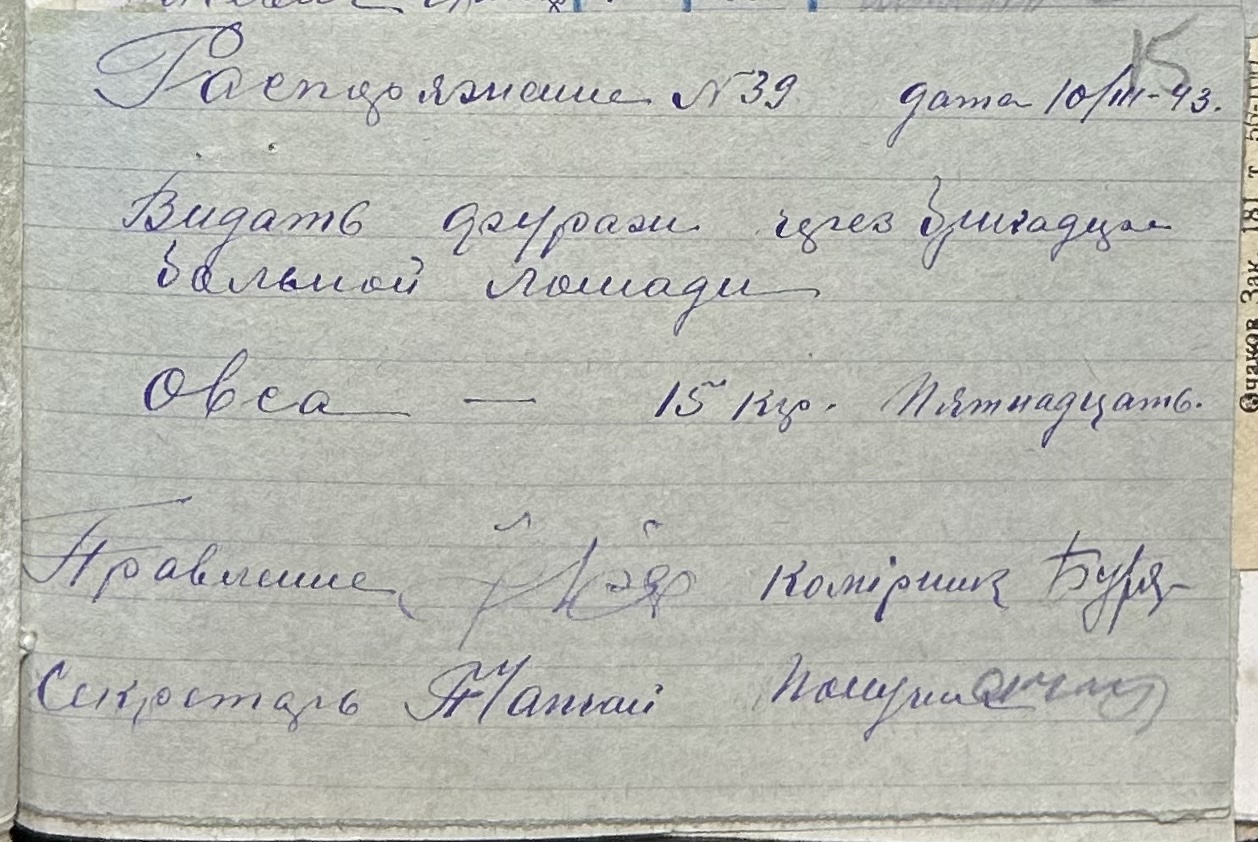 15
Распоряжение N39 дата 10/III-43.
Видать фураж через бригадира
больной лошади
Овса — 15 кгр. Пятнадцать.
Правление Комірник Буря
Секретарь Получил
Очаков Зак. 181 т.